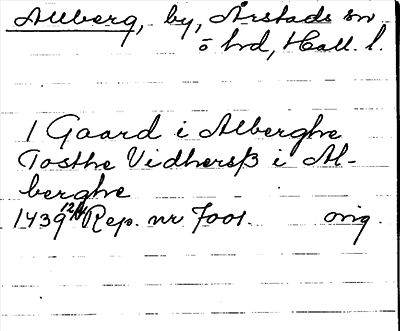 Allberg, by, Årstads sn
o hd, Hall. l.
1 Gaard i Alberghe
Tosthe Vidhersß i Al-
berghe
1439 12/4 Rep. nr 7001. orig.